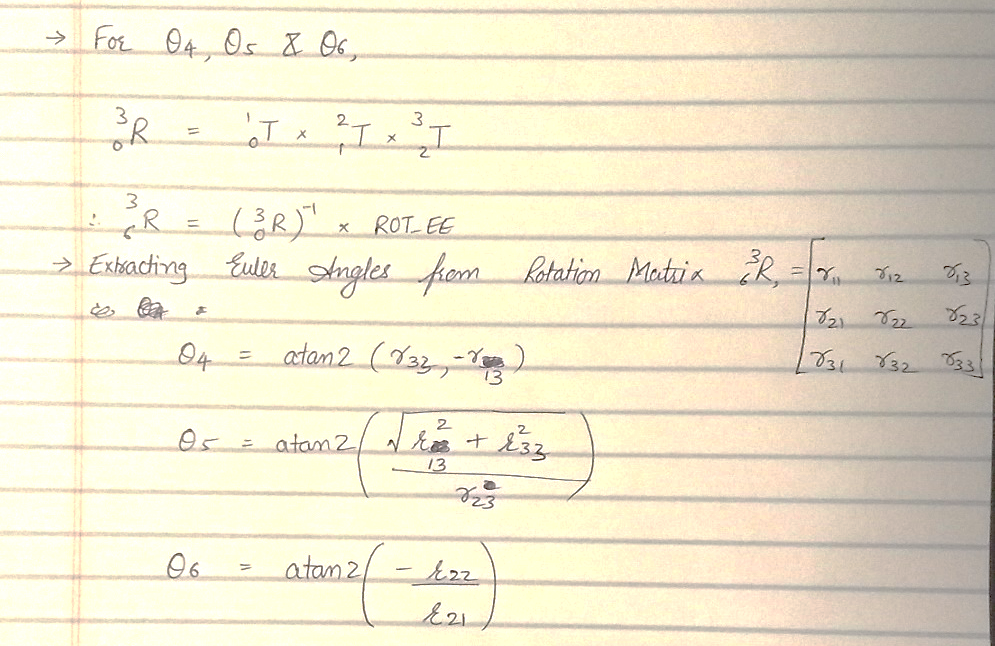 → For θ4, θ5 & θ6,
³₀R = ¹₀T × ²₁T × ³₂T
∴ ³₆R = (³₀R)⁻¹ × ROT_EE
→ Extracting Euler Angles from Rotation Matrix ³₆R, = [r11 r12 r13
r21 r22 r23
r31 r32 r33]
θ4 = atan2 (r33, -r13)
θ5 = atan2 (√(r13² + r33²) / r23)
θ6 = atan2 (- r22 / r21)